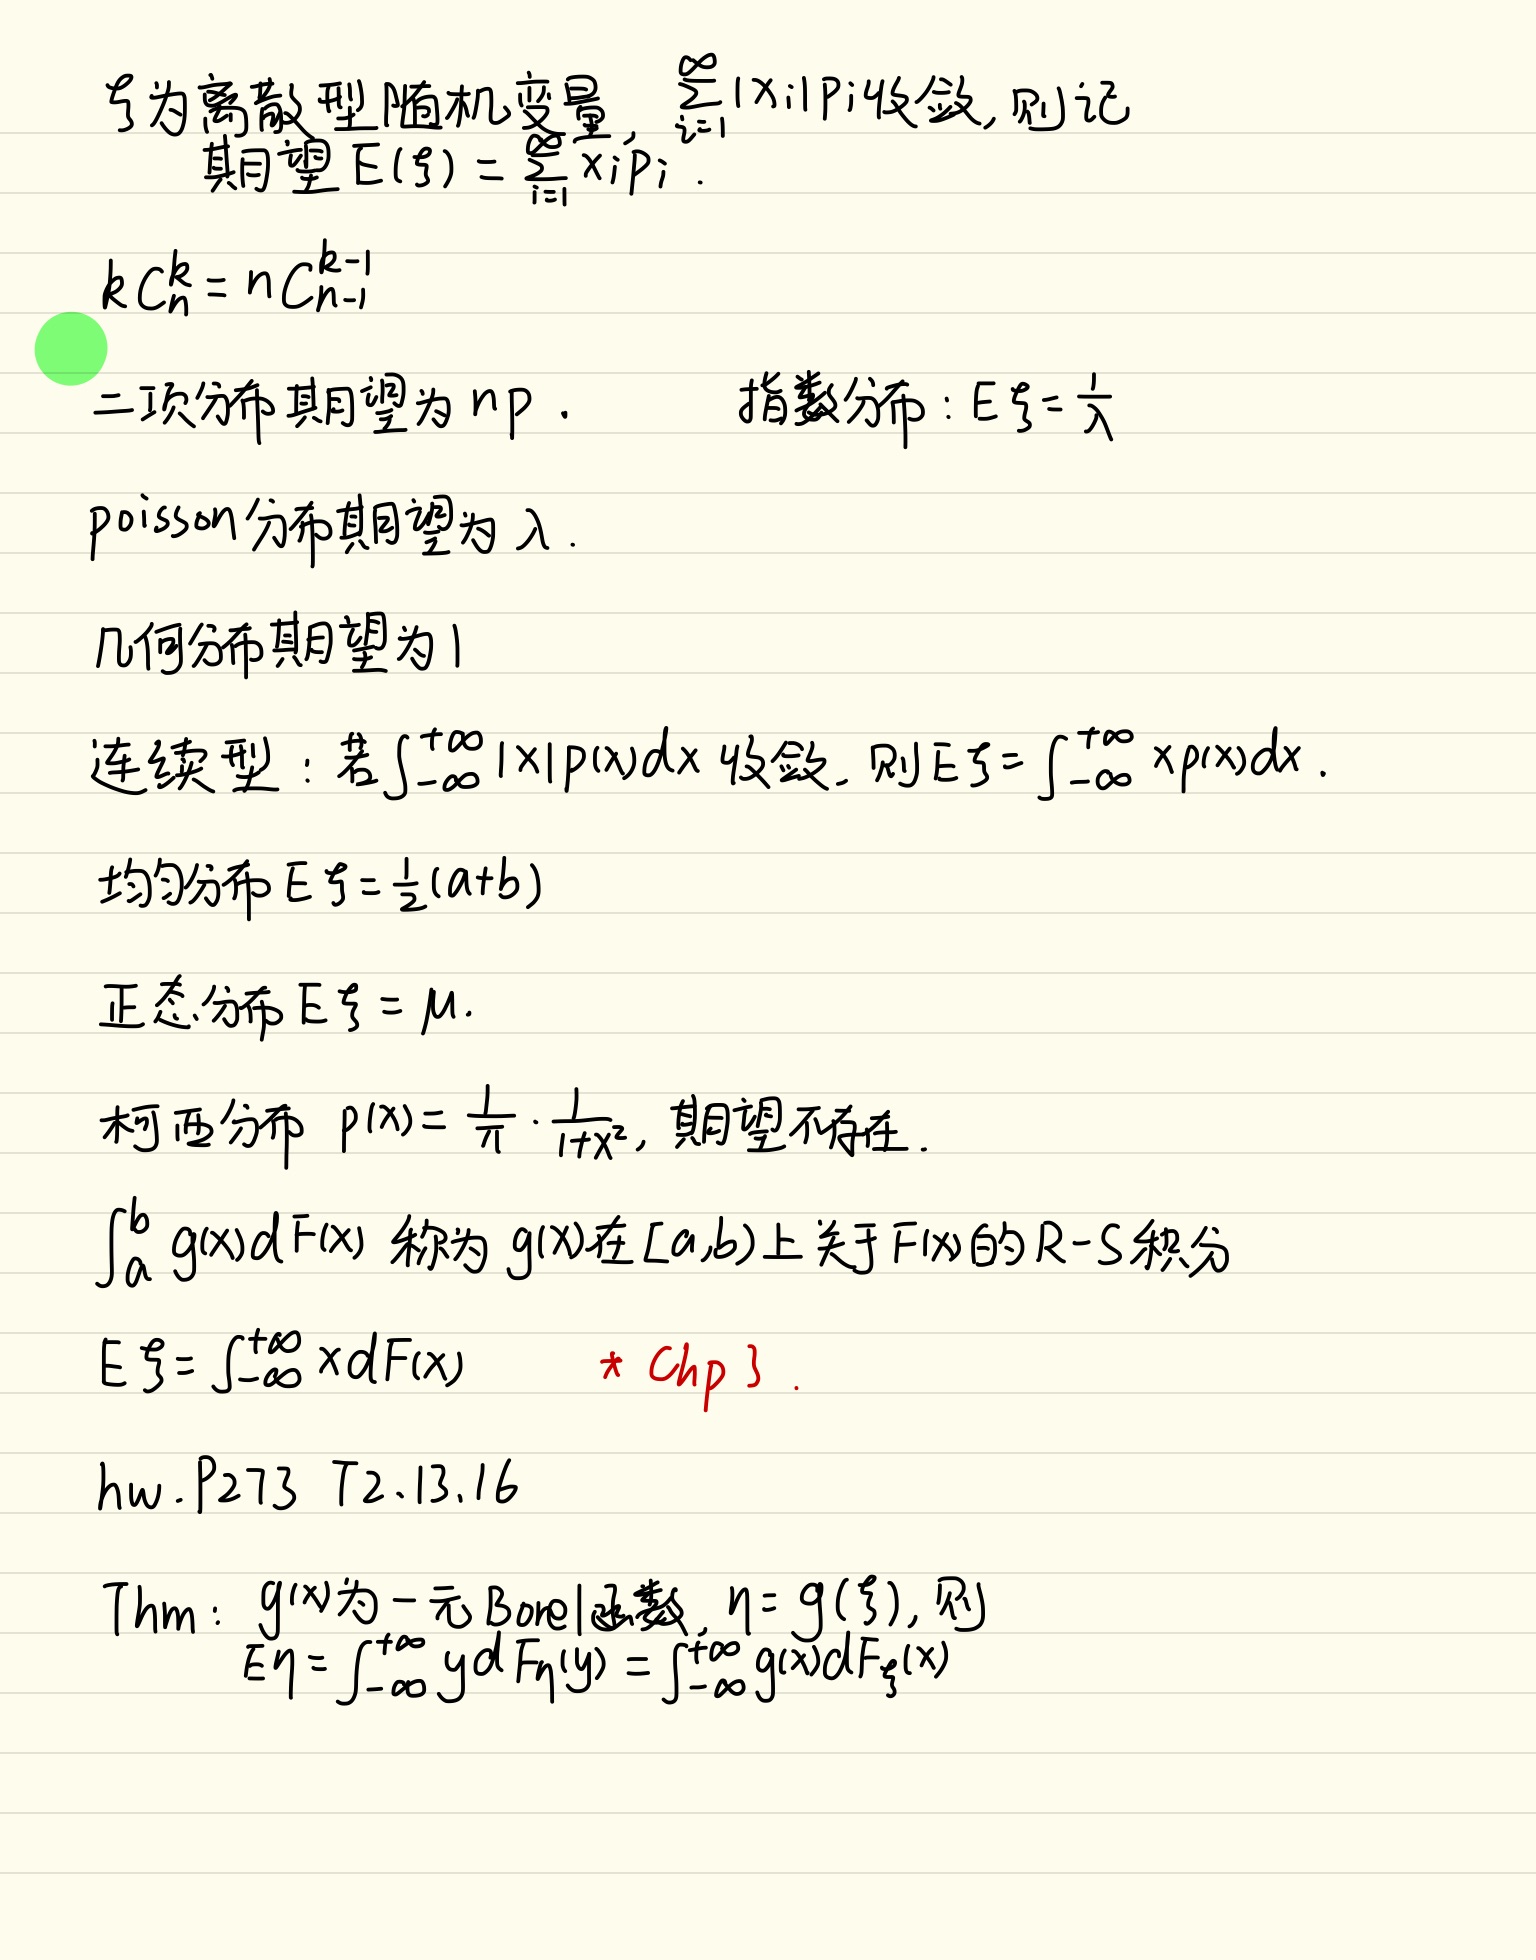 ξ为离散型随机变量, ∑_{i=1}^{∞}|xi|pi收敛,则记
期望 E(ξ) = ∑_{i=1}^{∞} xipi .
kC_n^k = nC_{n-1}^{k-1}
二项分布期望为 np . 指数分布: Eξ = 1/λ
poisson分布期望为 λ .
几何分布期望为1
连续型: 若∫_{-∞}^{+∞}|x|p(x)dx 收敛, 则Eξ = ∫_{-∞}^{+∞} xp(x)dx .
均匀分布 Eξ = 1/2(a+b)
正态分布 Eξ = μ.
柯西分布 p(x) = 1/π · 1/(1+x²), 期望不存在.
∫_a^b g(x)dF(x) 称为 g(x)在[a,b)上关于F(x)的R-S积分
Eξ = ∫_{-∞}^{+∞} xdF(x) * Chp 3 .
hw. P273 T2.13.16
Thm: g(x)为一元Borel函数, η = g(ξ), 则
Eη = ∫_{-∞}^{+∞} ydFη(y) = ∫_{-∞}^{+∞} g(x)dFξ(x)